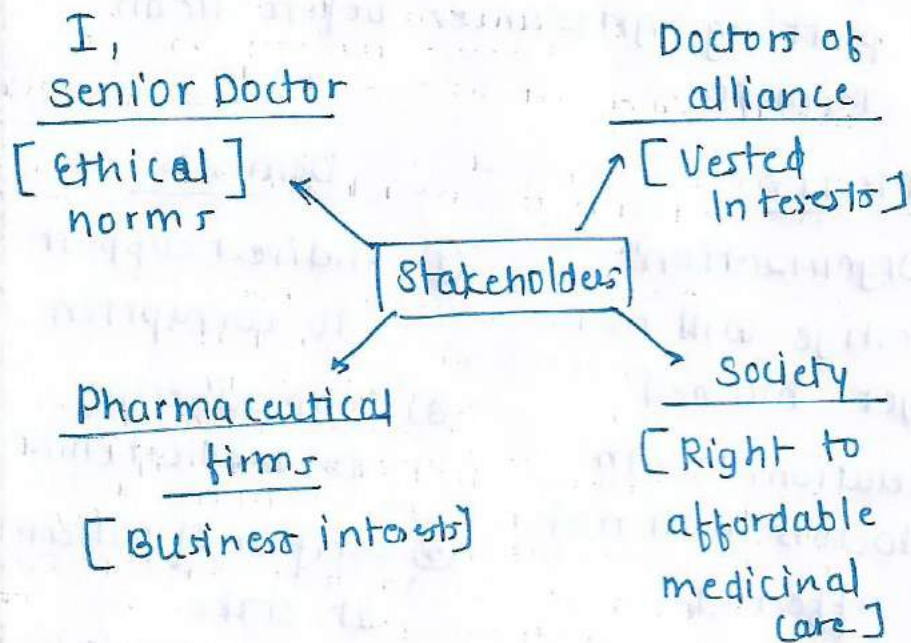 I,
Senior Doctor
[Ethical]
norms
Doctors of
alliance
[Vested
Interests]
Stakeholders
Pharmaceutical
firms
[Business interests]
Society
[Right to
affordable
medicinal
care]